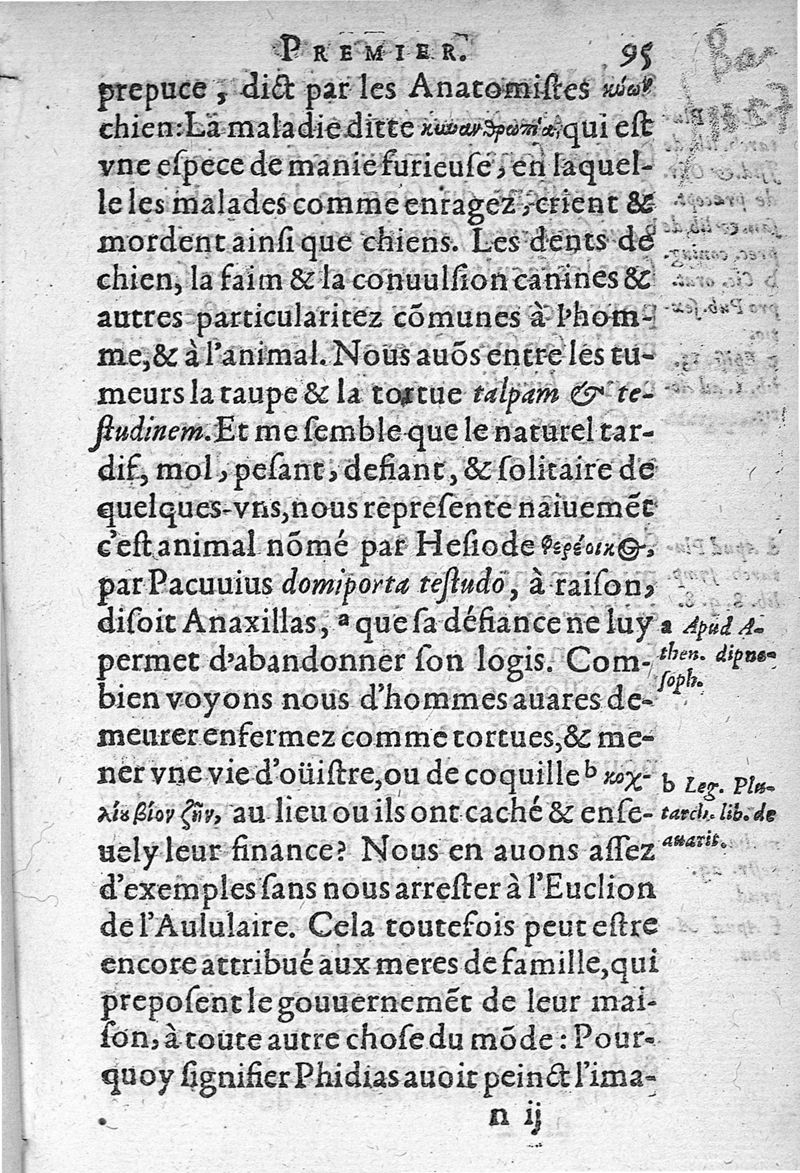 PREMIER. 95
prepuce, dict par les Anatomiſtes κύων
chien: La maladie ditte κυνανθρωπία, qui eſt
vne eſpece de manie furieuſe, en laquel-
le les malades comme enragez, crient &
mordent ainſi que chiens. Les dents de
chien, la faim & la conuulſion canines &
autres particularitez cõmunes à l'hom-
me, & à l'animal. Nous auõs entre les tu-
meurs la taupe & la tortue talpam & te-
ſtudinem. Et me ſemble que le naturel tar-
dif, mol, peſant, defiant, & ſolitaire de
quelques-vns, nous repreſente naiuemẽt
c'eſt animal nõmé par Heſiode φερέοικος,
par Pacuuius domiporta teſtudo, à raiſon,
diſoit Anaxillas, ᵃ que ſa défiance ne luy
permet d'abandonner ſon logis. Com-
bien voyons nous d'hommes auares de-
meurer enfermez comme tortues, & me-
ner vne vie d'oüiſtre, ou de coquille ᵇ κοχ-
λίου βίον ζῆν, au lieu ou ils ont caché & enſe-
uely leur finance? Nous en auons aſſez
d'exemples ſans nous arreſter à l'Euclion
de l'Aululaire. Cela toutefois peut eſtre
encore attribué aux meres de famille, qui
prepoſent le gouuernemẽt de leur mai-
ſon, à toute autre choſe du mõde: Pour-
quoy ſignifier Phidias auoit peinct l'ima-
n ij
a Apud A-
then. dipno-
ſoph.
b Leg. Plu-
tarch. lib. de
auarit.